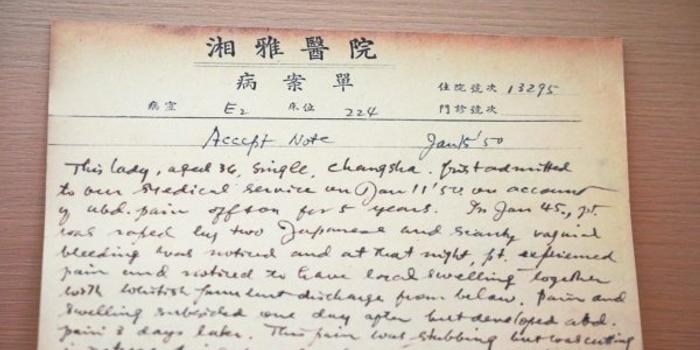 湘雅醫院
病案單
住院號次 13295
病室 E2 床位 224 門診號次
Accept Note Jan 15 '50
This lady, aged 36, single, Changsha. first admitted
to our medical service on Jan 11 '50 on account
of abd. pain off & on for 5 years. In Jan 45, pt.
was raped by two Japanese and scanty vaginal
bleeding was noticed and at that night, pt. experienced
pain and noticed to have local swelling together
with whitish discharge from below. Pain and
swelling subsided one day after but developed abd.
pain 3 days later. This pain was stabbing but was